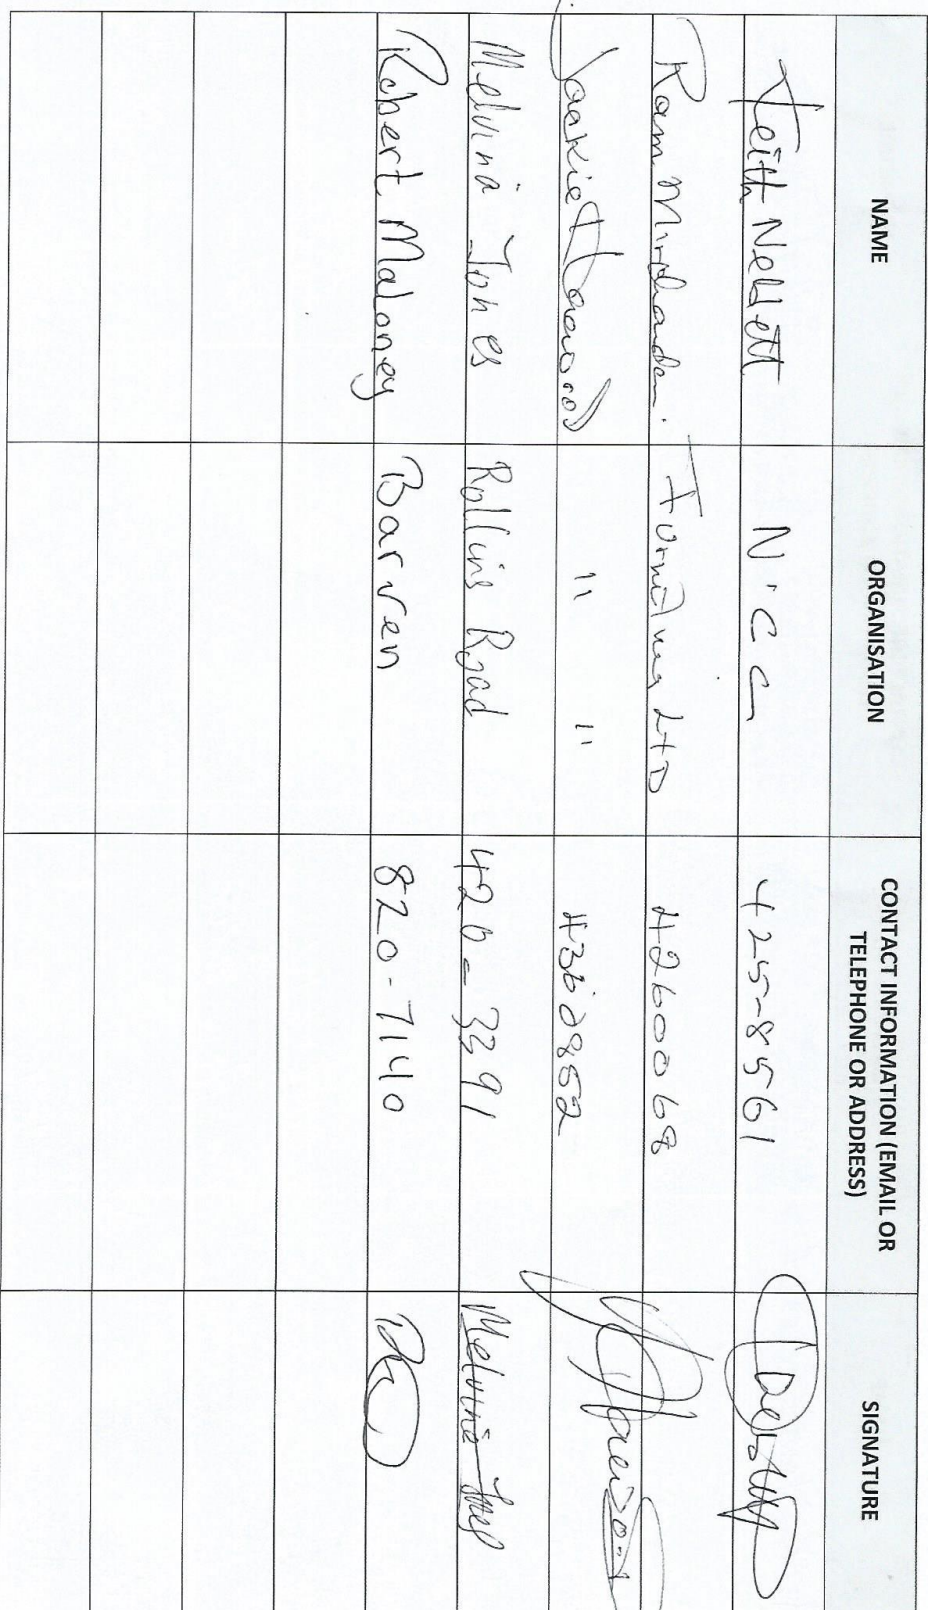 NAME ORGANISATION CONTACT INFORMATION (EMAIL OR TELEPHONE OR ADDRESS) SIGNATURE
Keith Neblett N.C.C 425-8561
Ram Mirchandani Furniture LTD 4260068
Jackie Haewood " " 4360852
Melvina Jones Rollins Road 420-3391 Melvina Jones
Robert Maloney Barven 820-7140